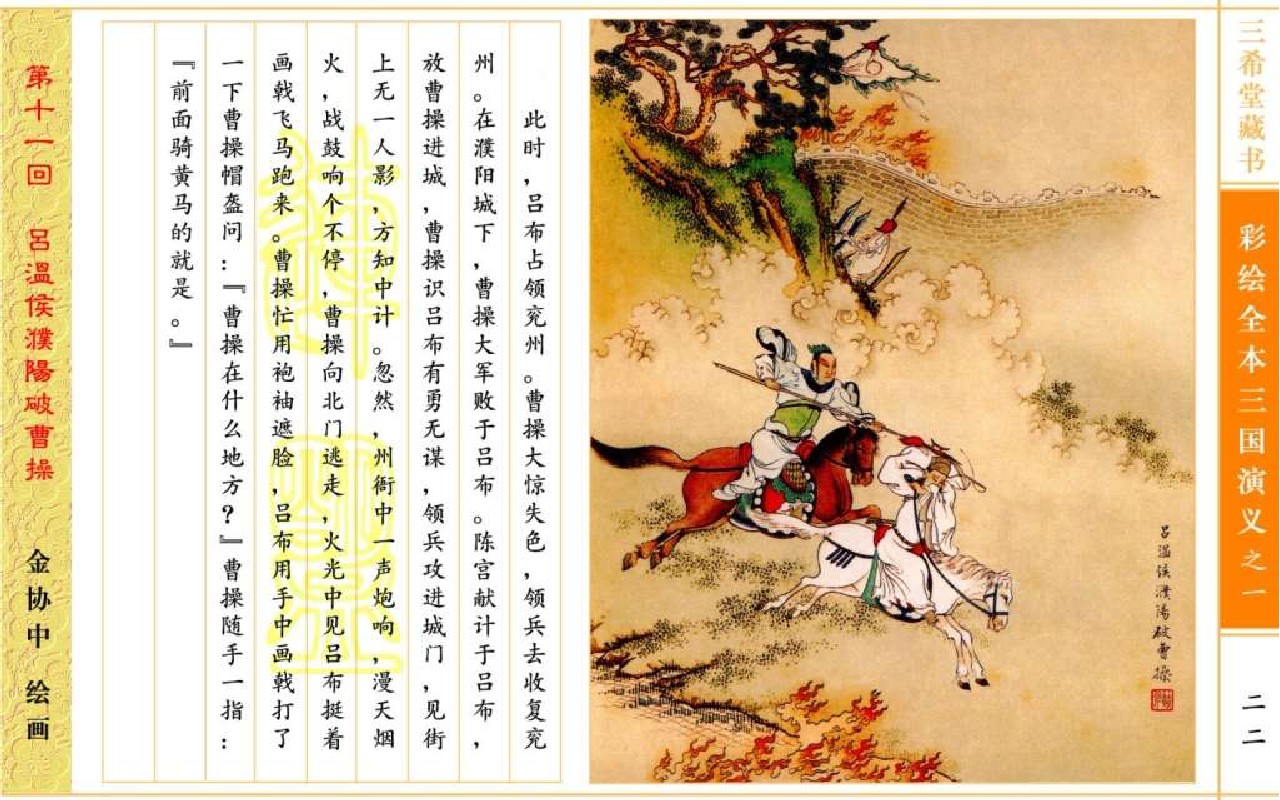 三希堂藏书
彩绘全本三国演义之一
二二
吕温侯濮陽破曹操
此时，吕布占领兖州。曹操大惊失色，领兵去收复兖
州。在濮阳城下，曹操大军败于吕布。陈宫献计于吕布，
放曹操进城，曹操识吕布有勇无谋，领兵攻进城门，见街
上无一人影，方知中计。忽然，州衙中一声炮响，漫天烟
火，战鼓响个不停，曹操向北门逃走，火光中见吕布挺着
画戟飞马跑来。曹操忙用袍袖遮脸，吕布用手中画戟打了
一下曹操帽盔问：『曹操在什么地方？』曹操随手一指：
『前面骑黄马的就是。』
第十一回 吕温侯濮陽破曹操
金协中 绘画